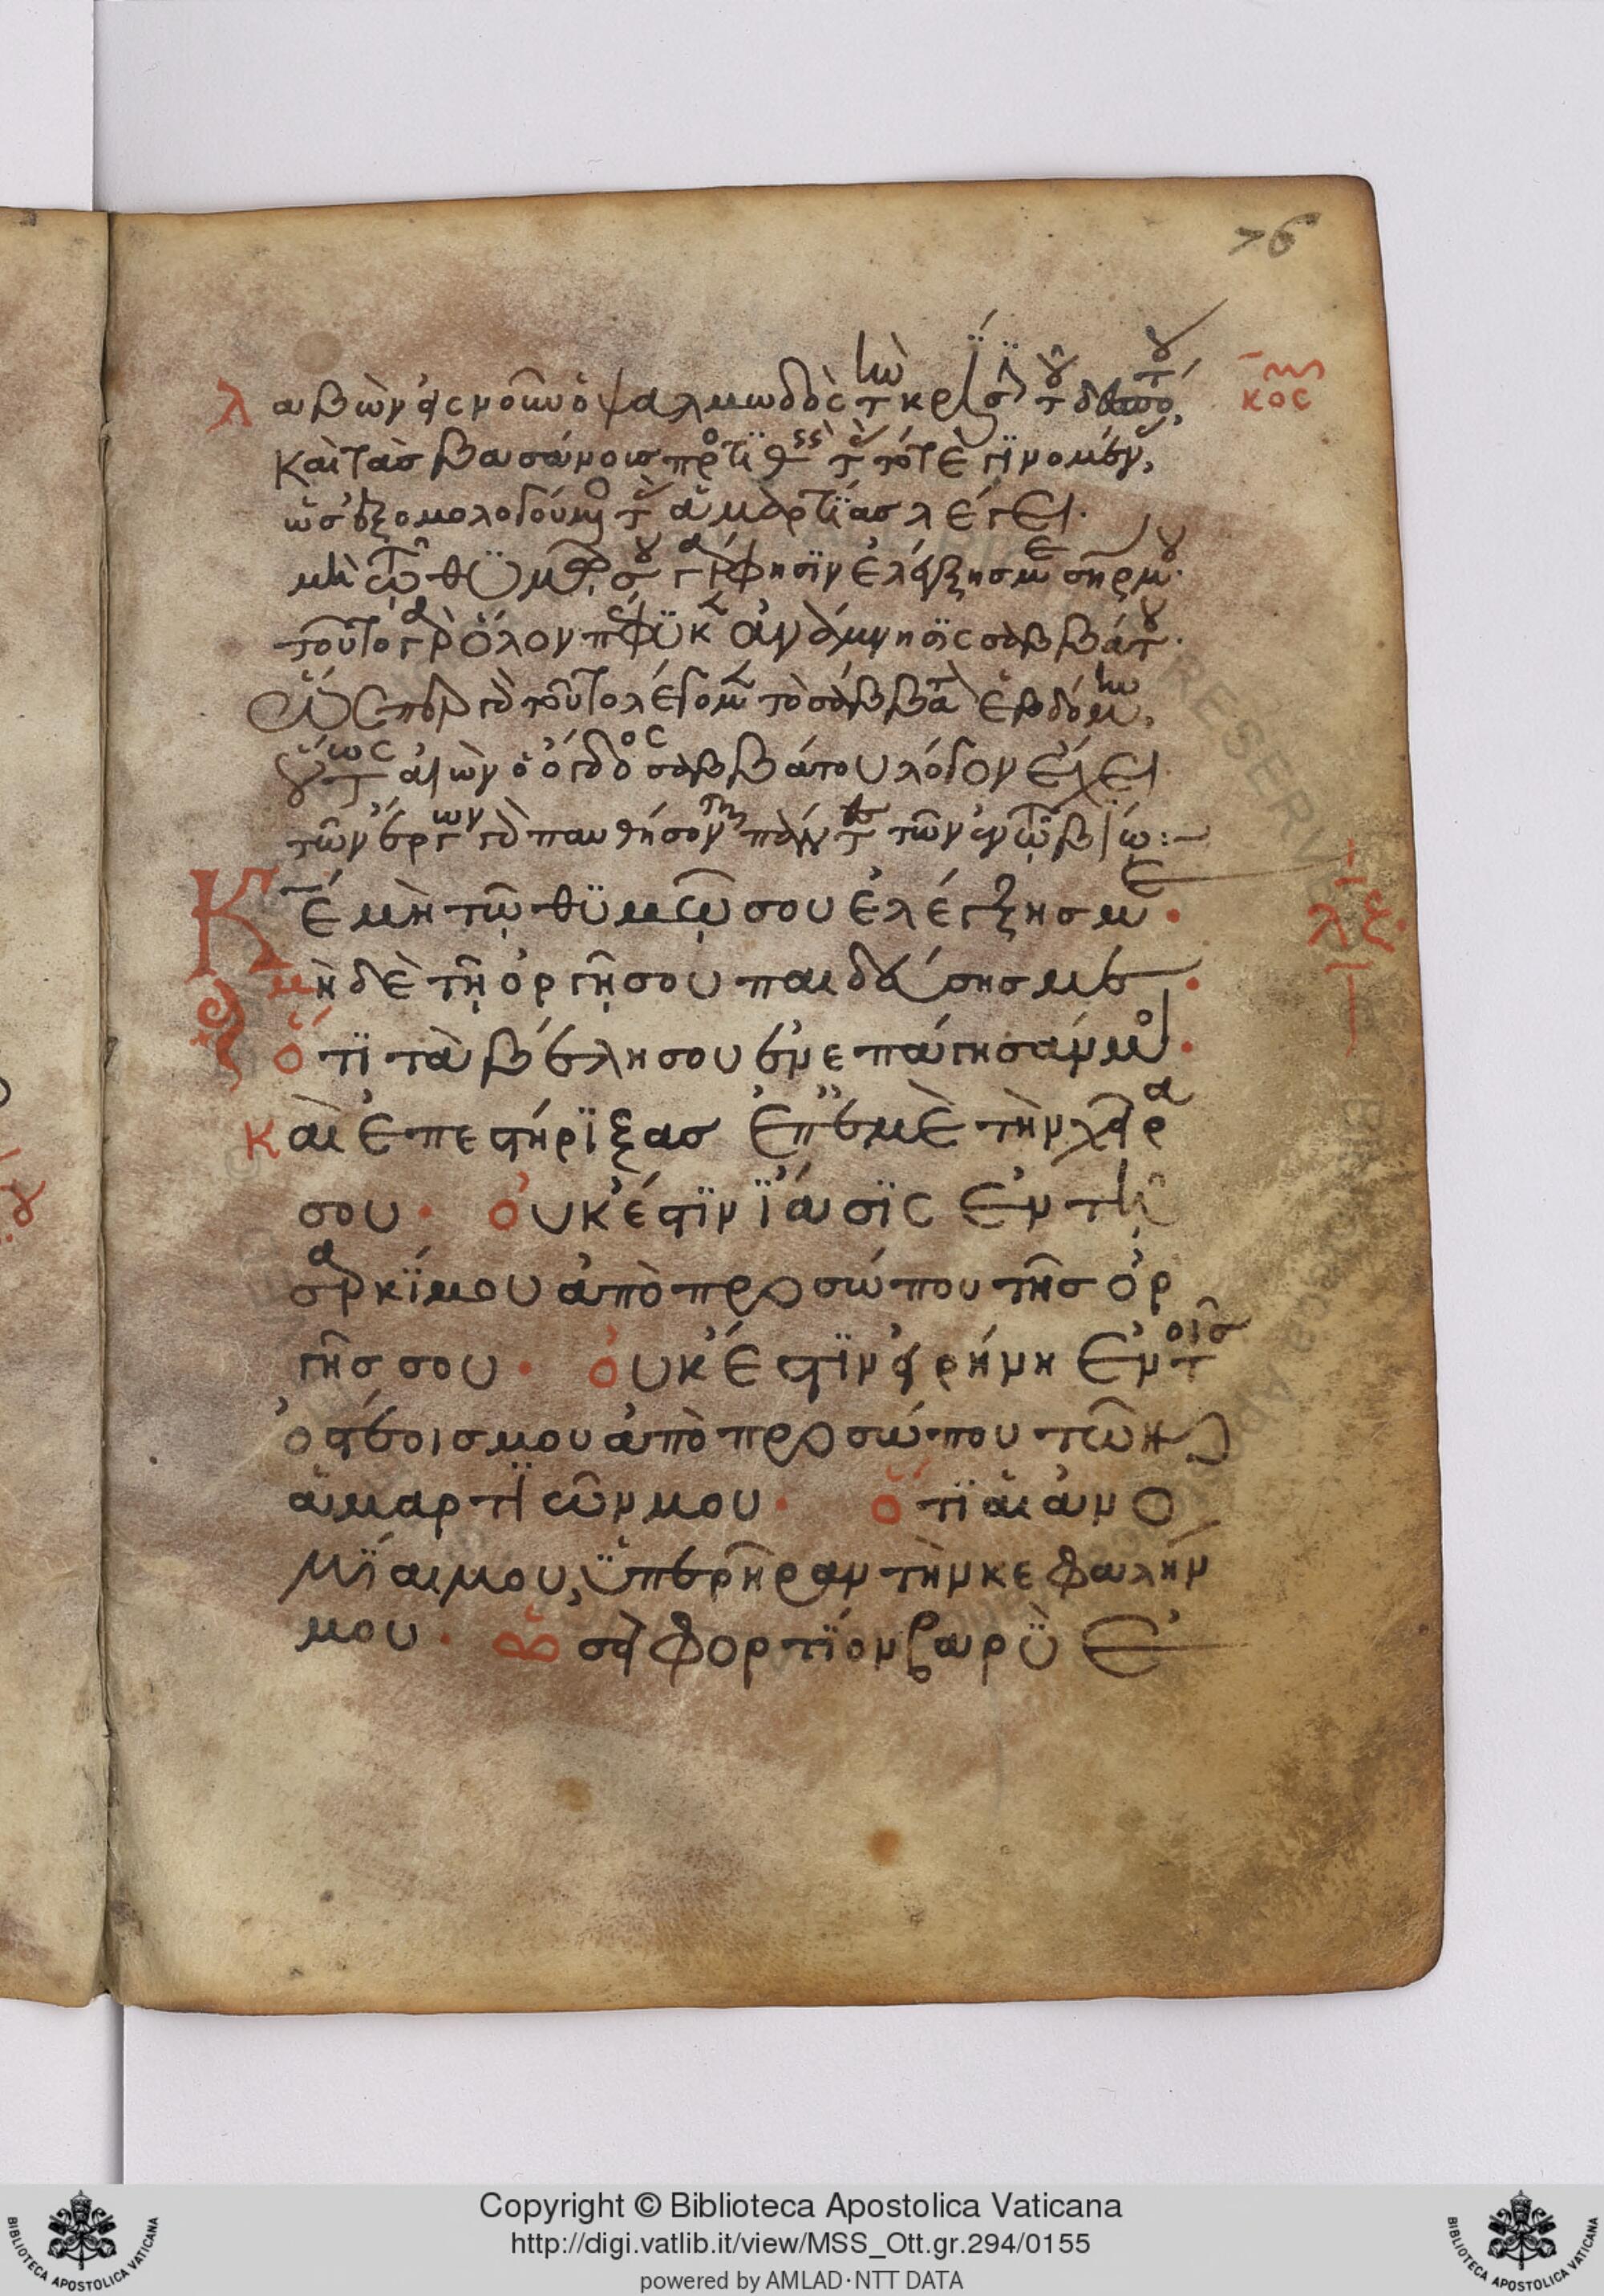 76
λαβὼν ἐς νοῦν ὁ ψαλμωδὸς τὴν κρίσιν τοῦ
κος
καὶ τὰς βασάνους τότε γινομεν,
ὡς ἐξομολογούμενος τὰς ἁμαρτίας λέγει·
μὴ τῷ θυμῷ σου γάρ φησιν ἐλέγξης με σῆρ μου·
τοῦτο γὰρ ὅλον πέφυκεν ἀνάμνησις σαββάτου·
Ὥσπερ γὰρ τοῦτο λέγομεν τὸ σάββατον ἑβδόμην,
οὕτως αἰὼν ὁ ὄγδοος σαββάτου λόγον ἔχει
τῶν ἔργων γὰρ παυθήσονται πάντες τῶν ἐν τῷ βίῳ:~
Κε μὴ τῷ θυμῷ σου ἐλέγξης με·
λζ
μηδὲ τῇ ὀργῇ σου παιδεύσης με·
ὅτι τὰ βέλη σου ἐνεπάγησάν μοι·
καὶ ἐπεστήριξας ἐπ' ἐμὲ τὴν χεῖρα
σου· οὐκ ἔστιν ἴασις ἐν τῇ
σαρκί μου ἀπὸ προσώπου τῆς ὀρ
γῆς σου· οὐκ ἔστιν εἰρήνη ἐν τοῖς
ὀστέοις μου ἀπὸ προσώπου τῶν
ἁμαρτιῶν μου· ὅτι αἱ ἀνο
μίαι μου, ὑπερῆραν τὴν κεφαλήν
μου· ὡσεὶ φορτίον βαρὺ ἐ
Copyright © Biblioteca Apostolica Vaticana
http://digi.vatlib.it/view/MSS_Ott.gr.294/0155
powered by AMLAD·NTT DATA
BIBLIOTECA APOSTOLICA VATICANA
BIBLIOTECA APOSTOLICA VATICANA